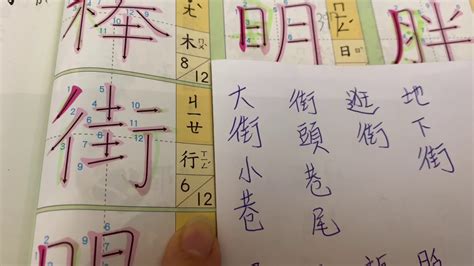 棒
木
8/12
明
日
胖
街
ㄐㄧㄝ
行
ㄒㄧㄥˊ
6/12
地下街
逛街
街頭巷尾
大街小巷
明